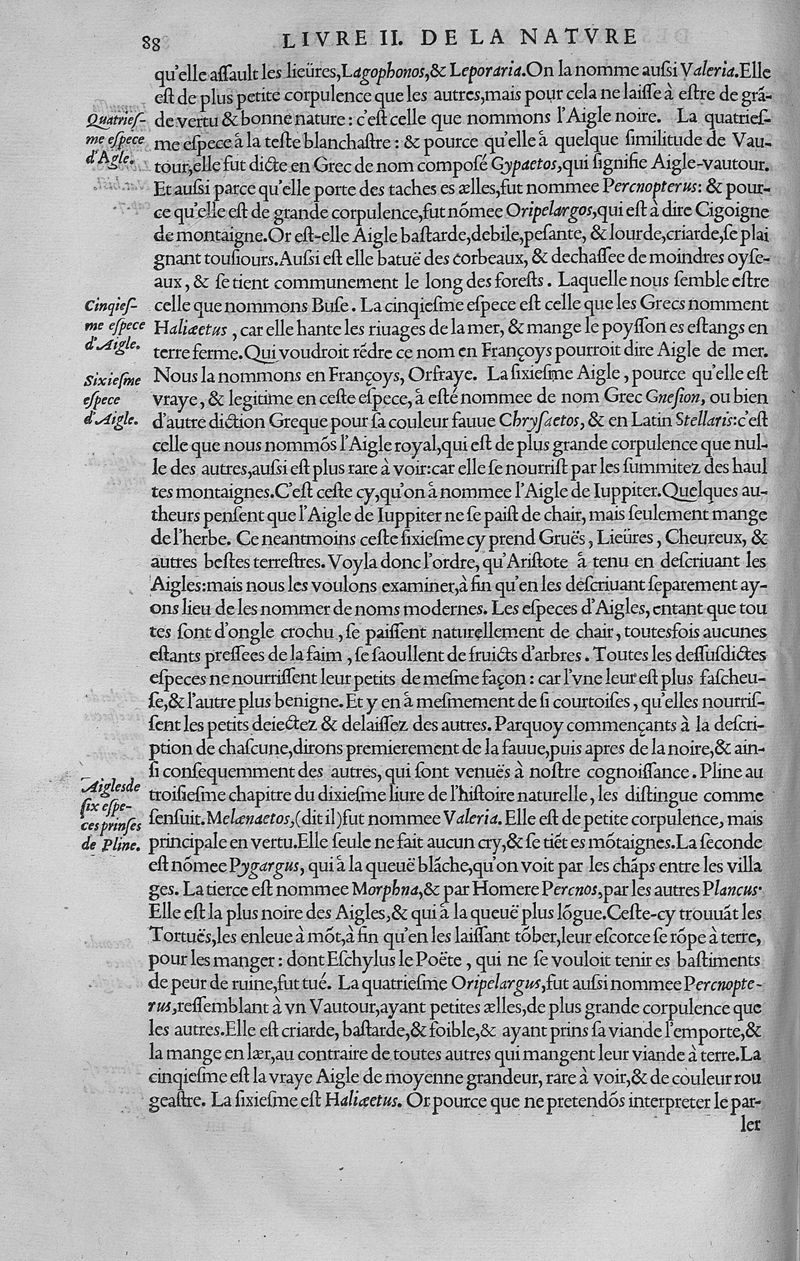 88 LIVRE II. DE LA NATVRE
qu'elle aſſault les lieüres,Lagophonos,& Leporaria.On la nomme auſsi Valeria.Elle
eſt de plus petite corpulence que les autres,mais pour cela ne laiſſe à eſtre de grã-
de vertu & bonne nature : c'eſt celle que nommons l'Aigle noire. La quatrieſ-
me eſpece à la teſte blanchaſtre : & pource qu'elle à quelque ſimilitude de Vau-
tour,elle fut dicte en Grec de nom compoſé Gypaetos,qui ſignifie Aigle-vautour.
Et auſsi parce qu'elle porte des taches es ælles,fut nommee Percnopterus: & pour-
ce qu'elle eſt de grande corpulence,fut nõmee Oripelargos,qui eſt à dire Cigoigne
de montaigne.Or eſt-elle Aigle baſtarde,debile,peſante, & lourde,criarde,ſe plai
gnant touſiours.Auſsi eſt elle batuë des corbeaux, & dechaſſee de moindres oyſe-
aux, & ſe tient communement le long des foreſts. Laquelle nous ſemble eſtre
celle que nommons Buſe. La cinqieſme eſpece eſt celle que les Grecs nomment
Haliæetus , car elle hante les riuages de la mer, & mange le poyſſon es eſtangs en
terre ferme.Qui voudroit rẽdre ce nom en Françoys pourroit dire Aigle de mer.
Nous la nommons en Françoys, Orfraye. La ſixieſme Aigle , pource qu'elle eſt
vraye, & legitime en ceſte eſpece, à eſté nommee de nom Grec Gneſion, ou bien
d'autre diction Greque pour ſa couleur fauue Chryſaetos, & en Latin Stellaris:c'eſt
celle que nous nommõs l'Aigle royal,qui eſt de plus grande corpulence que nul-
le des autres,auſsi eſt plus rare à voir:car elle ſe nourriſt par les ſummitez des haul
tes montaignes.C'eſt ceſte cy,qu'on à nommee l'Aigle de Iuppiter.Quelques au-
theurs penſent que l'Aigle de Iuppiter ne ſe paiſt de chair, mais ſeulement mange
de l'herbe. Ce neantmoins ceſte ſixieſme cy prend Gruës , Lieüres , Cheureux, &
autres beſtes terreſtres. Voyla donc l'ordre, qu'Ariſtote à tenu en deſcriuant les
Aigles:mais nous les voulons examiner,à fin qu'en les deſcriuant ſeparement ay-
ons lieu de les nommer de noms modernes. Les eſpeces d'Aigles, entant que tou
tes ſont d'ongle crochu , ſe paiſſent naturellement de chair, toutesfois aucunes
eſtants preſſees de la faim , ſe ſaoullent de fruicts d'arbres . Toutes les deſſuſdictes
eſpeces ne nourriſſent leur petits de meſme façon : car l'vne leur eſt plus faſcheu-
ſe,& l'autre plus benigne.Et y en à meſmement de ſi courtoiſes , qu'elles nourriſ-
ſent les petits deiectez & delaiſſez des autres. Parquoy commençants à la deſcri-
ption de chaſcune,dirons premierement de la fauue,puis apres de la noire,& ain-
ſi conſequemment des autres, qui ſont venuës à noſtre cognoiſſance . Pline au
troiſieſme chapitre du dixieſme liure de l'hiſtoire naturelle , les diſtingue comme
ſenſuit. Melænaetos,(dit il)fut nommee Valeria. Elle eſt de petite corpulence, mais
principale en vertu.Elle ſeule ne fait aucun cry,& ſe tiẽt es mõtaignes.La ſeconde
eſt nõmee Pygargus, qui à la queuë blãche,qu'on voit par les chãps entre les villa
ges. La tierce eſt nommee Morphna,& par Homere Percnos,par les autres Plancus.
Elle eſt la plus noire des Aigles,& qui à la queuë plus lõgue.Ceſte-cy trouuãt les
Tortuës,les enleue à mõt,à fin qu'en les laiſſant tõber,leur eſcorce ſe rõpe à terre,
pour les manger : dont Eſchylus le Poëte , qui ne ſe vouloit tenir es baſtiments
de peur de ruine,fut tué. La quatrieſme Oripelargus,fut auſsi nommee Percnopte-
rus,reſſemblant à vn Vautour,ayant petites ælles,de plus grande corpulence que
les autres.Elle eſt criarde, baſtarde,& foible,& ayant prins ſa viande l'emporte,&
la mange en lær,au contraire de toutes autres qui mangent leur viande à terre.La
cinqieſme eſt la vraye Aigle de moyenne grandeur, rare à voir,& de couleur rou
geaſtre. La ſixieſme eſt Haliæetus. Or pource que ne pretendõs interpreter le par-
ler
Quatrieſ-
me eſpece
d'Agle.
Cinqieſ-
me eſpece
d'Aigle.
Sixieſme
eſpece
d'Aigle.
Aigles de
ſix eſpe-
ces prinſes
de Pline.